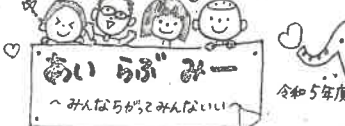 あい らぶ みー
～みんなちがってみんないい～
令和5年度